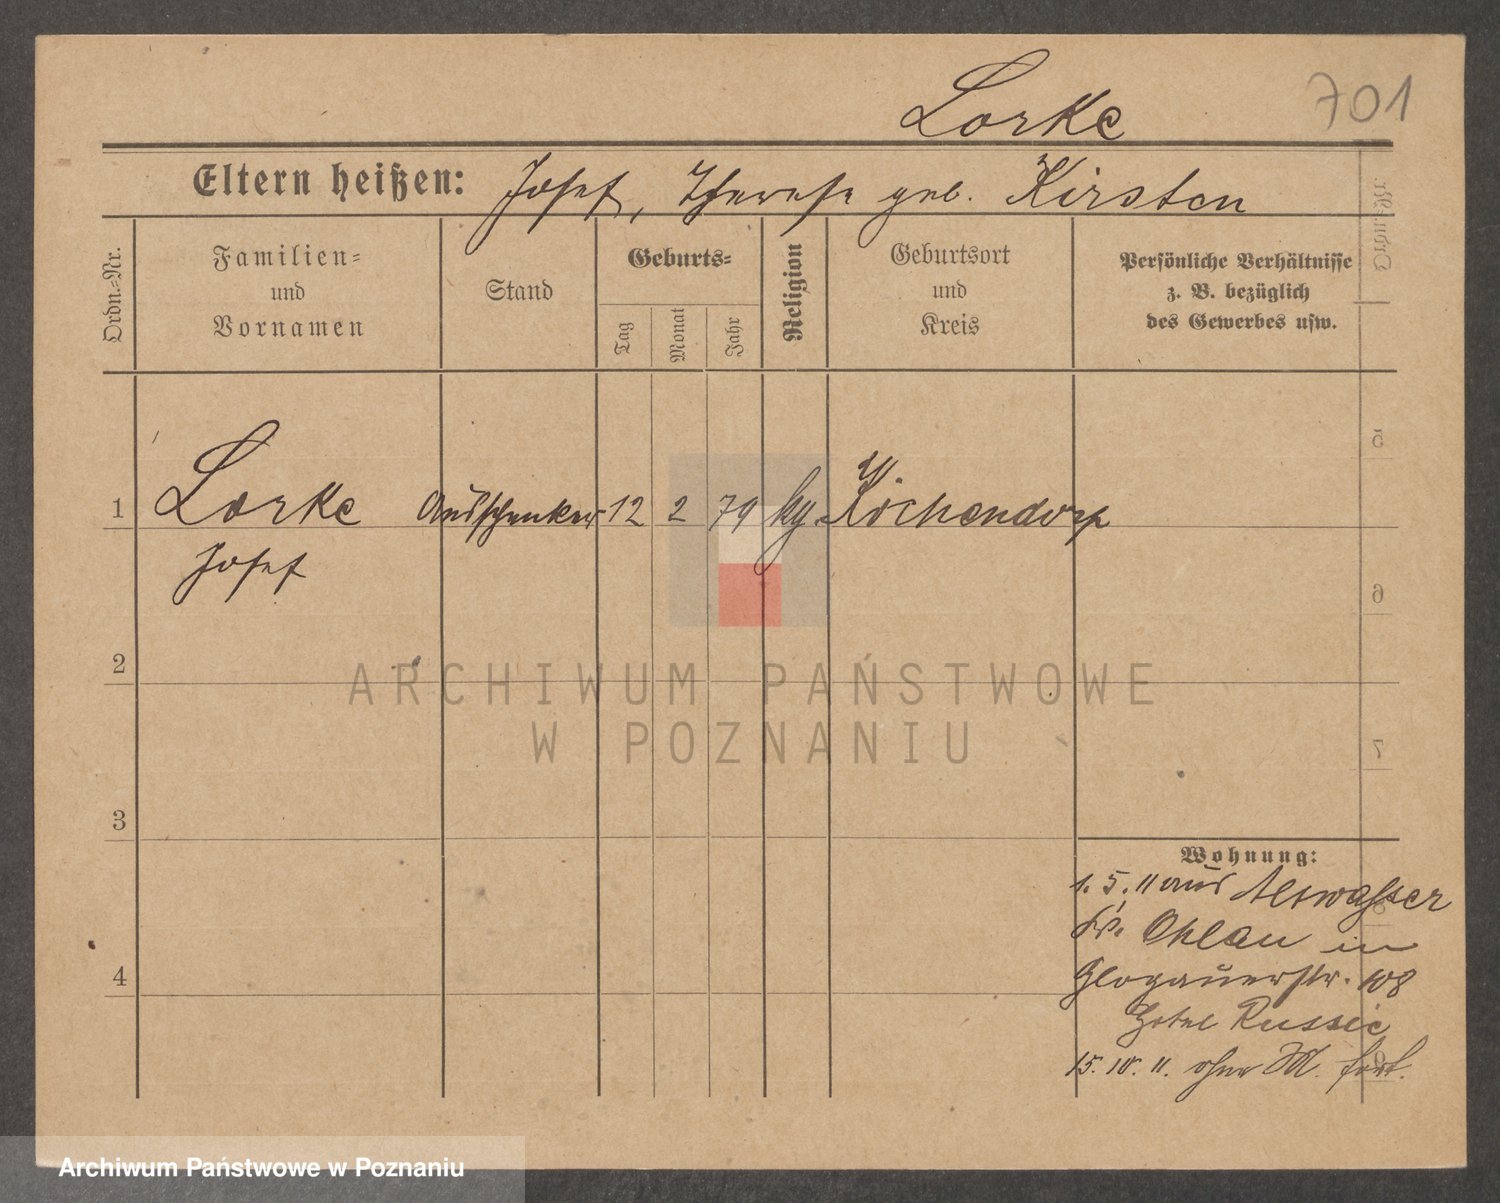 Lorke
701
Eltern heißen: Josef, Therese geb. Kirsten
Ordn.-Nr.
Familien-
und
Vornamen
Stand
Geburts-
Tag
Monat
Jahr
Religion
Geburtsort
und
Kreis
Persönliche Verhältnisse
z. B. bezüglich
des Gewerbes usw.
1 Lorke Ausschenker 12 2 79 Kirchendorf
Josef
2
3
4
Wohnung:
1. 5. 11 aus Altwasser
Ohlau in
Glogauerstr. 108
Hotel Russie
15. 10. 11. ohne M. fort.
5
6
7
8
9
ARCHIWUM PAŃSTWOWE
W POZNANIU
Archiwum Państwowe w Poznaniu